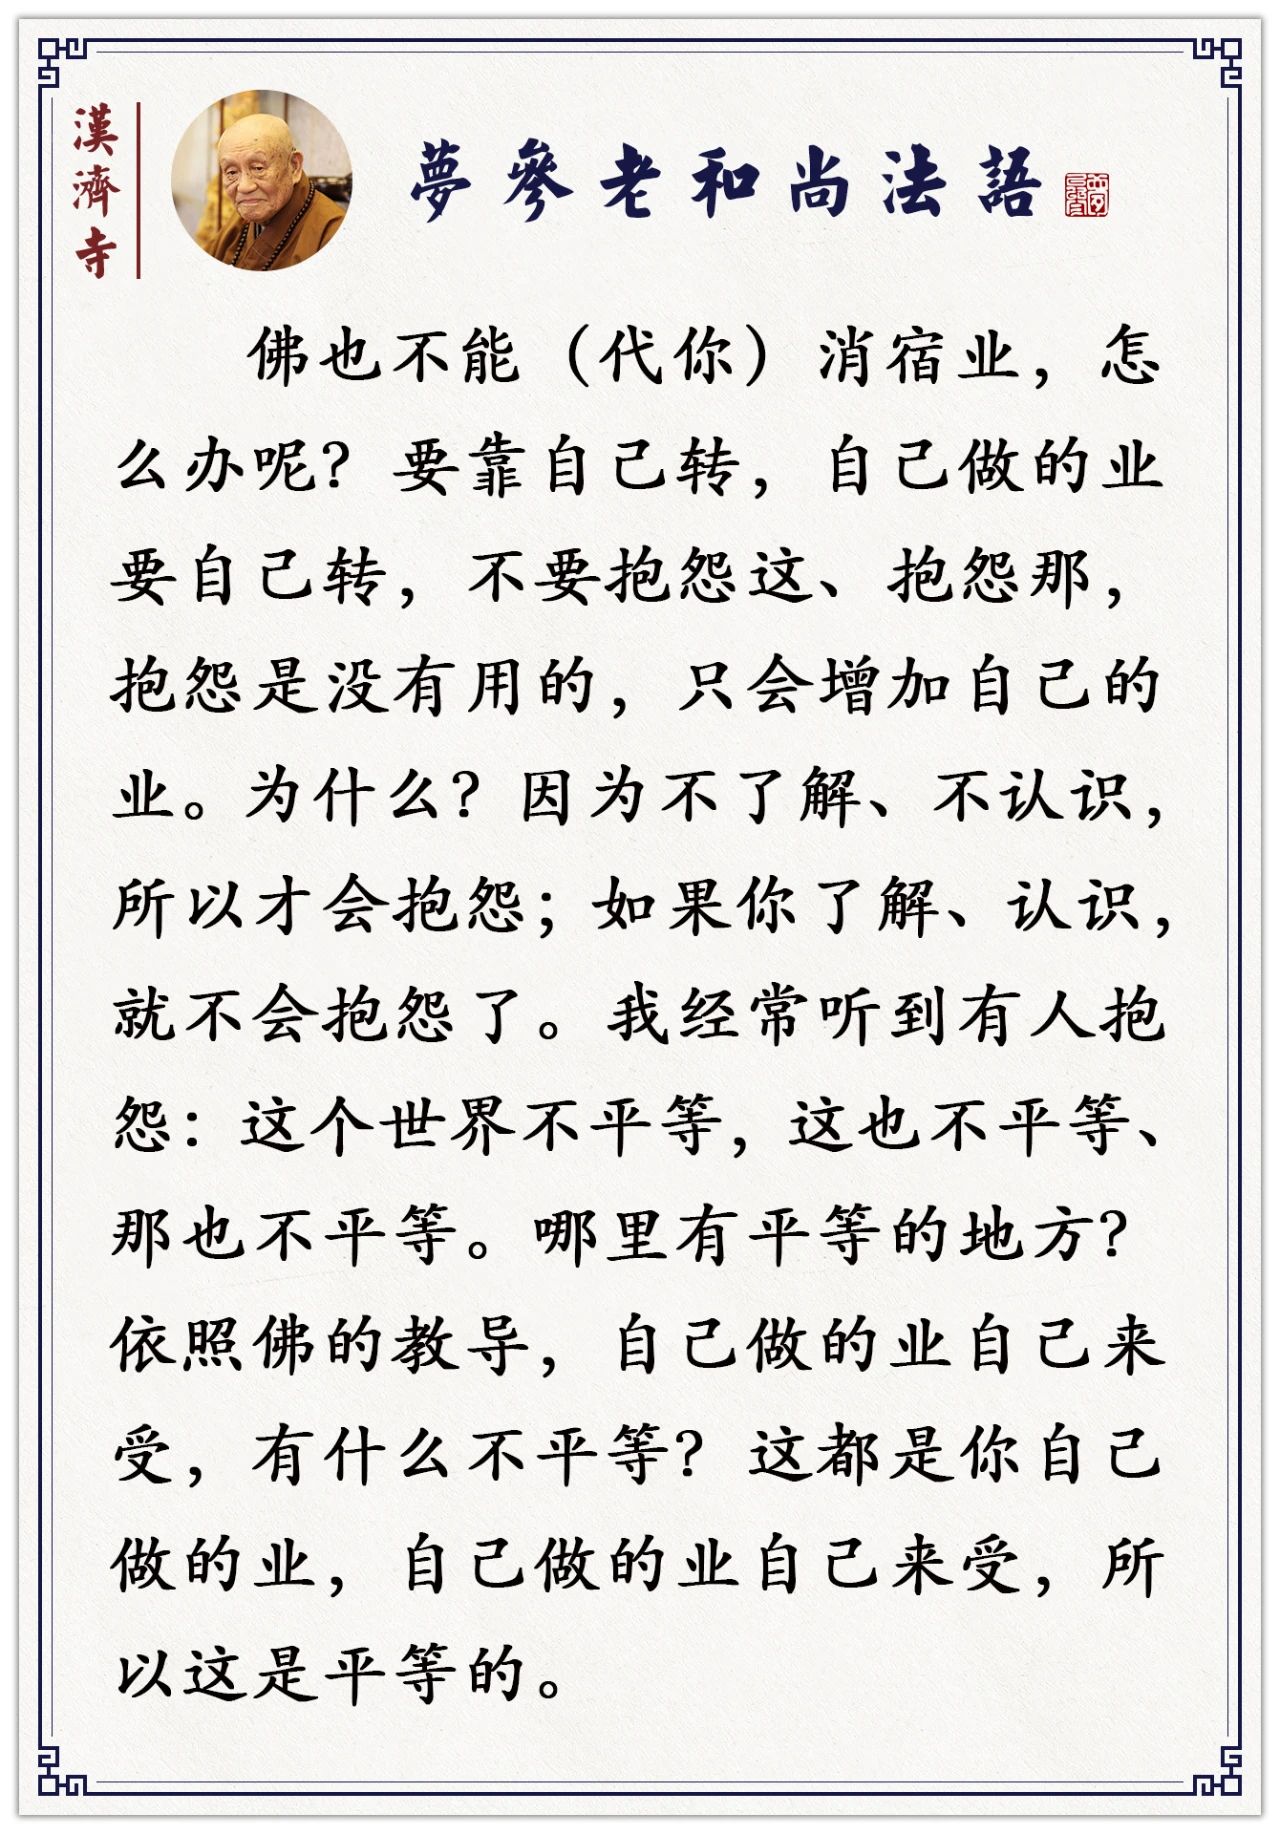 漢濟寺
夢參老和尚法語
佛也不能（代你）消宿业，怎
么办呢？要靠自己转，自己做的业
要自己转，不要抱怨这、抱怨那，
抱怨是没有用的，只会增加自己的
业。为什么？因为不了解、不认识，
所以才会抱怨；如果你了解、认识，
就不会抱怨了。我经常听到有人抱
怨：这个世界不平等，这也不平等、
那也不平等。哪里有平等的地方？
依照佛的教导，自己做的业自己来
受，有什么不平等？这都是你自己
做的业，自己做的业自己来受，所
以这是平等的。